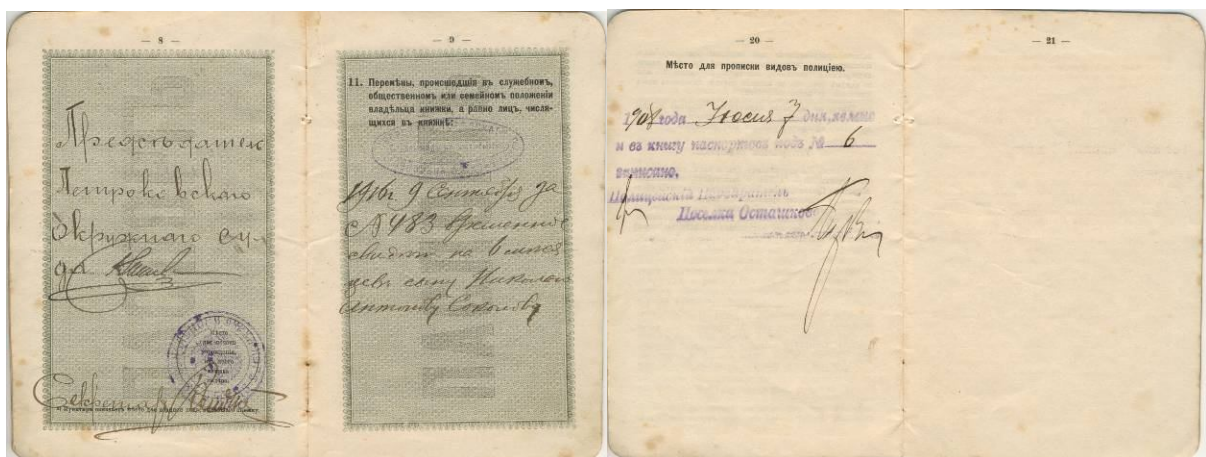 — 8 —
Председатель
Петроковскаго
Окружнаго су-
да
Мѣсто
Секретарь
— 9 —
11. Перемѣны, происшедшія въ служебномъ,
общественномъ или семейномъ положеніи
владѣльца книжки, а равно лицъ, числя-
щихся въ книжкѣ:
1916г 9 Сентября за
№ 483 временное
свидѣт на 6 мѣся
цевъ сыну Николаю
Антонову Соколову
— 20 —
Мѣсто для прописки видовъ полиціею.
1908 года Іюня 7 дня, явлена
и въ книгу паспортовъ подъ № 6
записано.
Полицейскій Надзиратель
Поселка Осташково
— 21 —